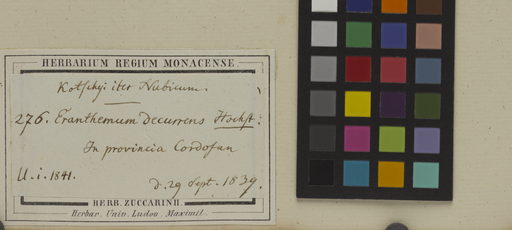 HERBARIUM REGIUM MONACENSE
Kotschyi iter Nubicum.
276. Eranthemum decurrens Hochst:
In provincia Cordofan
U. i. 1841.
d. 29 Sept. 1839.
HERB. ZUCCARINII.
Herbar. Univ. Ludov. Maximil.